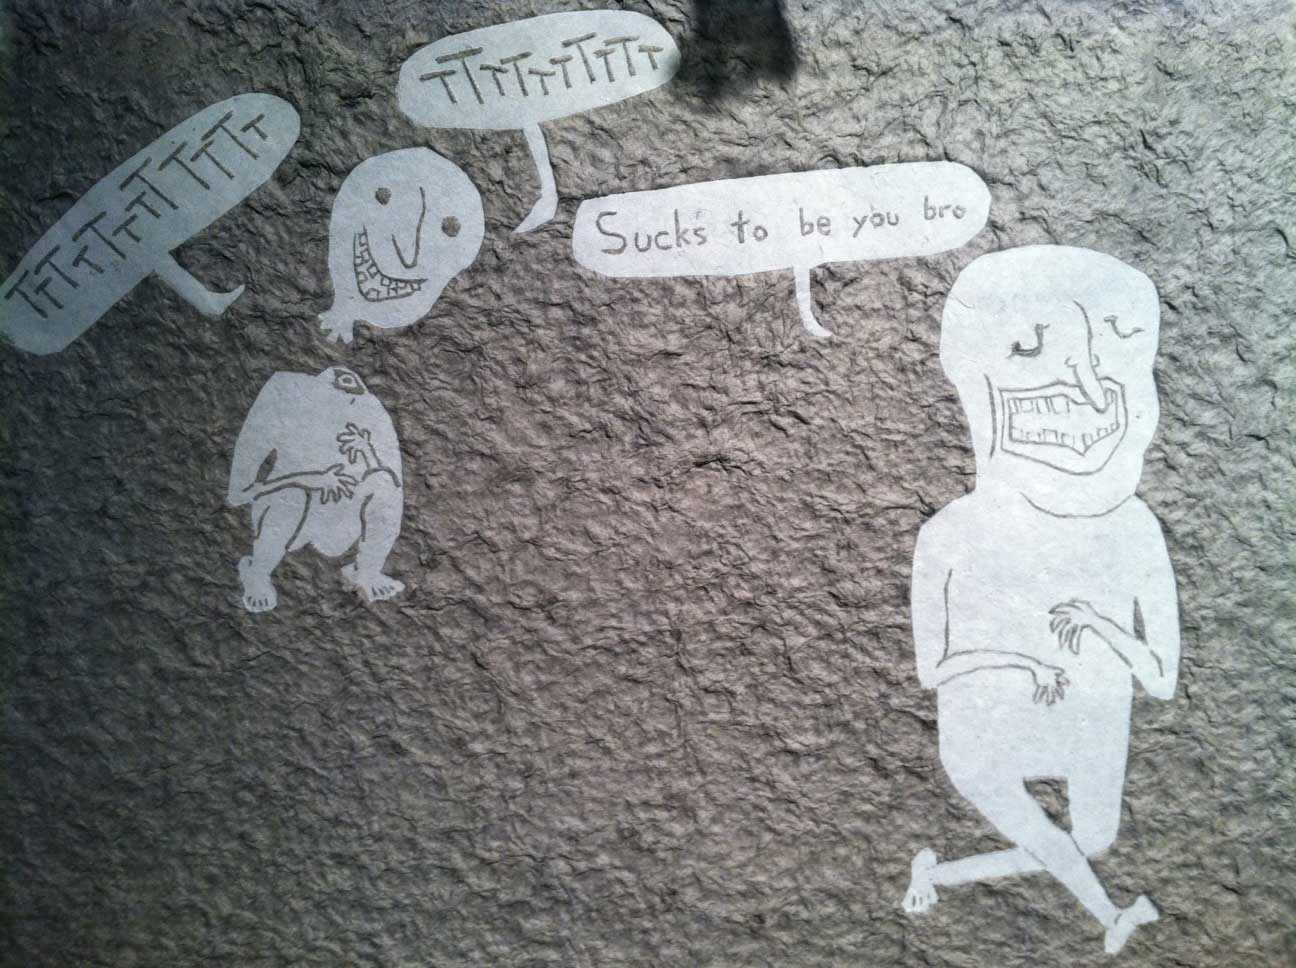 TTTTTTTTTT
TTTTTTTTTTTT
Sucks to be you bro